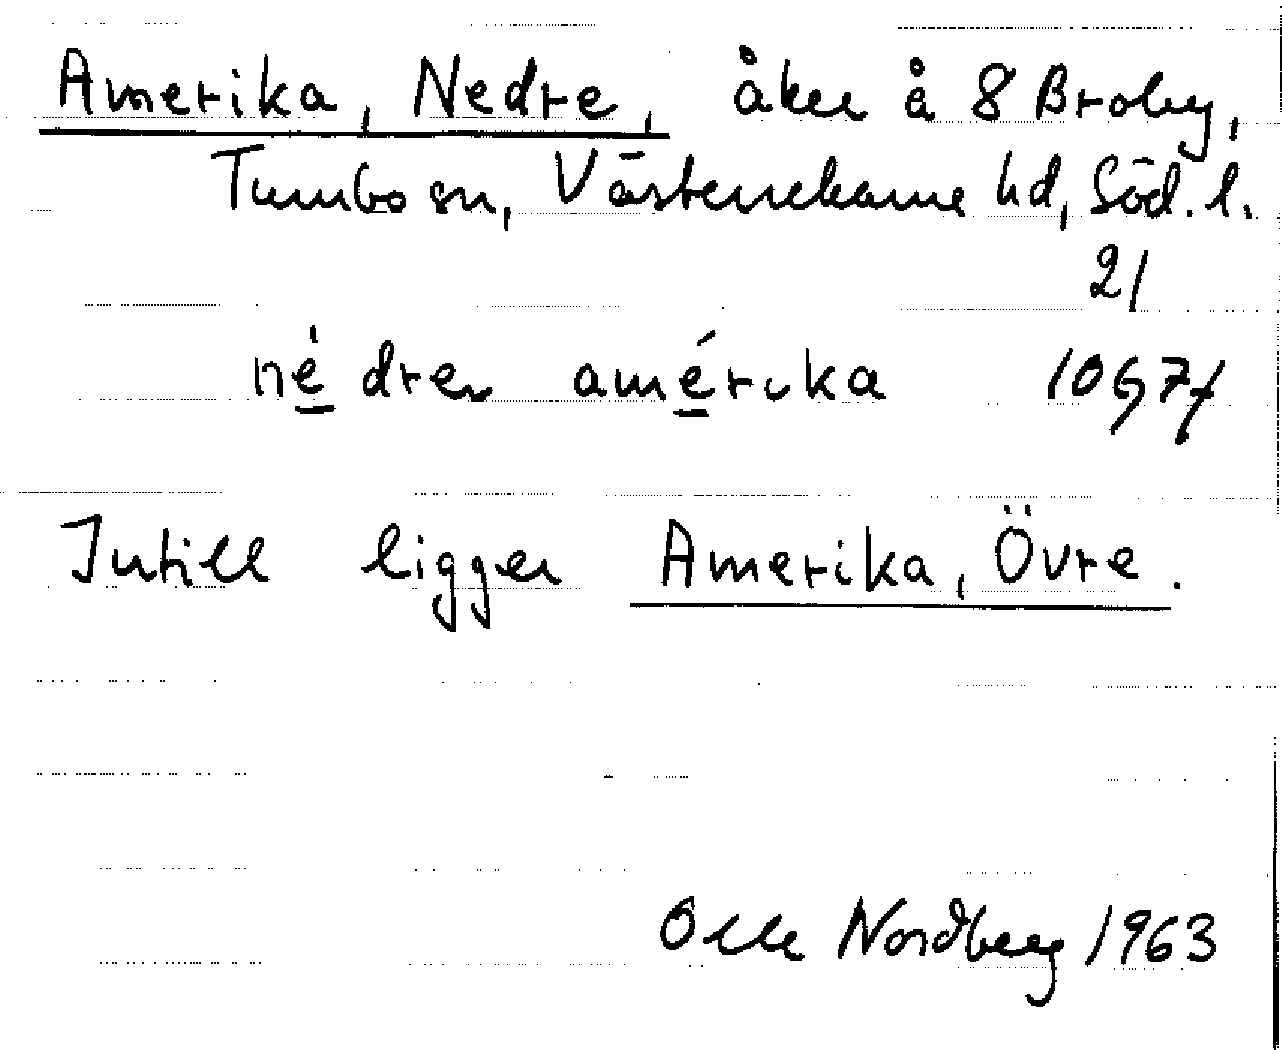 Amerika, Nedre, åker å 8 Broby,
Tumbo sn, Västerrekarne hd, Söd. l.
21
né̱ dren amé̱rika 10G7f
Intill ligger Amerika, Övre.
Olle Nordberg 1963